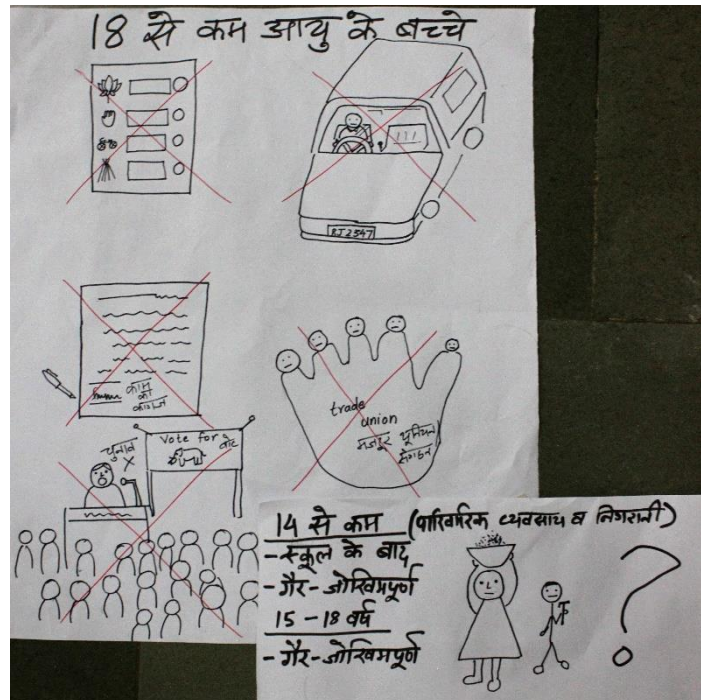 18 से कम आयु के बच्चे
RJ2547
काम
का
trade
union
मजदूर यूनियन
संगठन
चुनाव
Vote for
वोट
14 से कम (पारिवारिक व्यवसाय व निगरानी)
- स्कूल के बाद
- गैर-जोखिमपूर्ण
15 - 18 वर्ष
- गैर-जोखिमपूर्ण
?